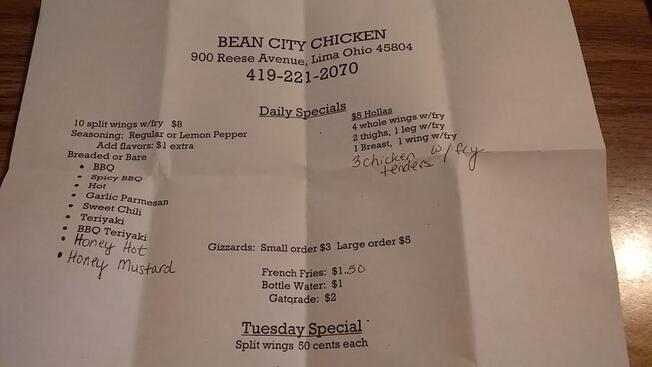 BEAN CITY CHICKEN
900 Reese Avenue, Lima Ohio 45804
419-221-2070
Daily Specials
10 split wings w/fry $8
Seasoning: Regular or Lemon Pepper
Add flavors: $1 extra
Breaded or Bare
• BBQ
• Spicy BBQ
• Hot
• Garlic Parmesan
• Sweet Chili
• Teriyaki
• BBQ Teriyaki
• Honey Hot
• Honey Mustard
$5 Hollas
4 whole wings w/fry
2 thighs, 1 leg w/fry
1 Breast, 1 wing w/fry
3 chicken w/fry
tenders
Gizzards: Small order $3 Large order $5
French Fries: $1.50
Bottle Water: $1
Gatorade: $2
Tuesday Special
Split wings 50 cents each